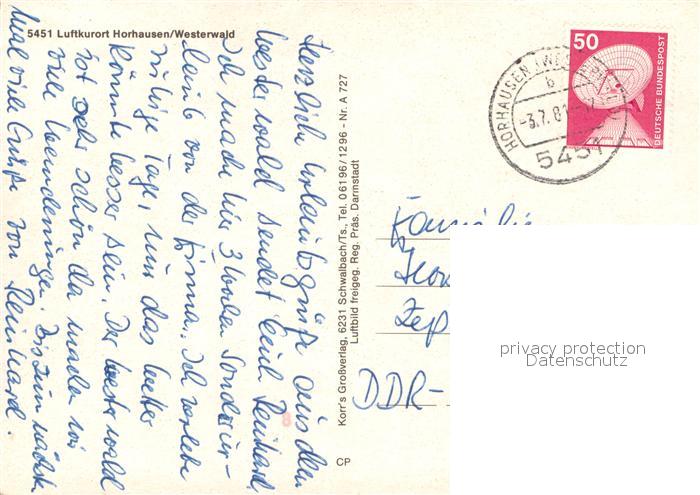 5451 Luftkurort Horhausen/Westerwald
Herzliche Urlaubsgrüße aus dem
Westerwald sendet Euch Reinhard.
Ich mache hier 3 Wochen Sonderur-
laub von der Firma. Ich verlebe
ruhige Tage, nur das Wetter
könnte besser sein. Der Westerwald
ist sehr schön da machen wir
viele Wanderungen. Bis zum nächsten
mal viele Grüße von Reinhard.
Korr's Großverlag, 6231 Schwalbach/Ts., Tel. 06196/1296 - Nr. A 727
Luftbild freigeg. Reg. Präs. Darmstadt
CP
8
50
DEUTSCHE BUNDESPOST
HORHAUSEN (WESTERWALD)
b
-3.7.81
5451
Familie
Zep
DDR-
privacy protection
Datenschutz